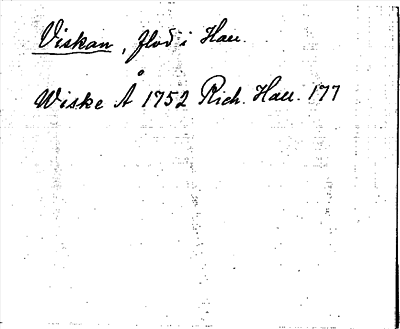 Viskan, flod i Hall.
Wiske Å 1752 Rich. Hall. 177